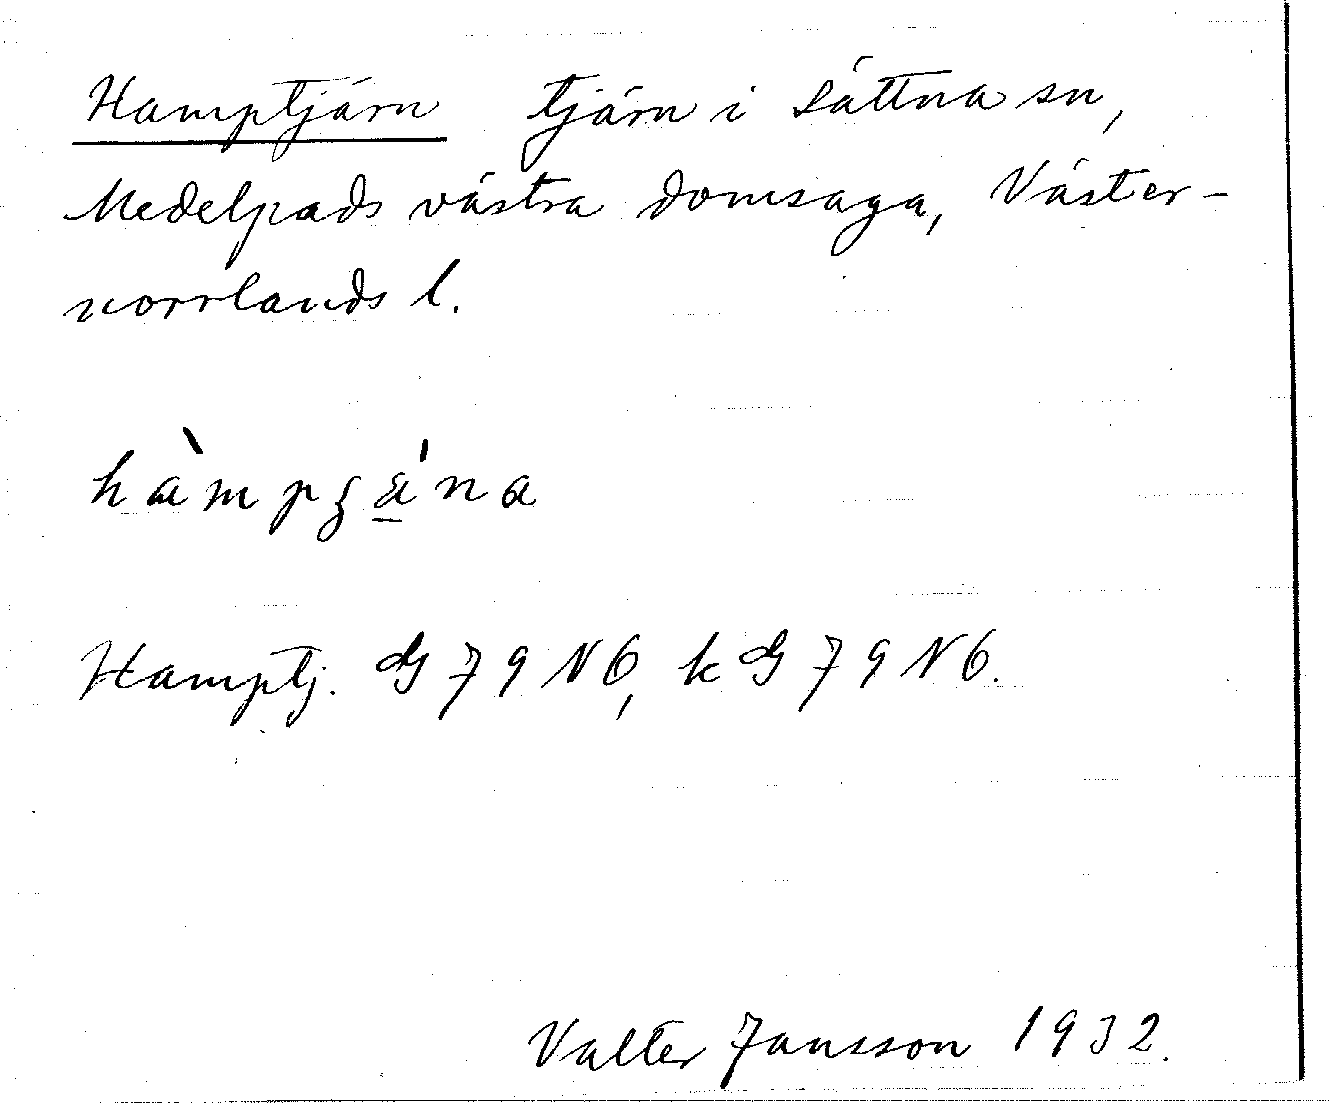 Hamptjärn tjärn i Sättna sn,
Medelpads västra domsaga, Väster-
norrlands l.
Hamptj. G 79 N6, k G 79 N6.
Valter Jansson 1932.